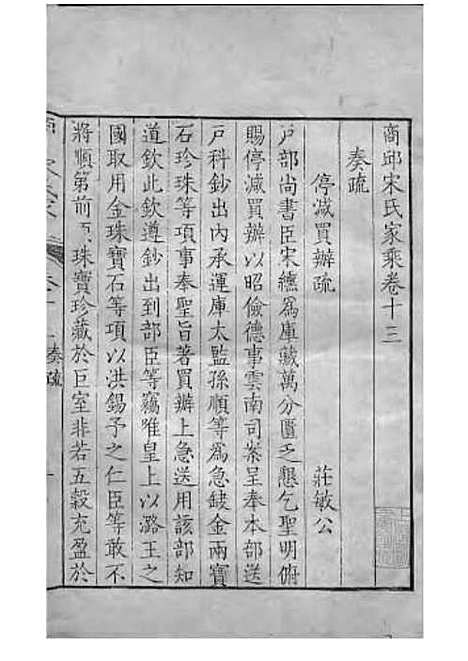 商邱宋氏家乘卷十三
奏疏
停減買辦疏 莊敏公
戸部尚書臣宋纁爲庫藏萬分匱乏懇乞聖明俯
賜停減買辦以昭儉德事雲南司案呈奉本部送
戸科鈔出內承運庫太監孫順等爲急缺金兩寶
石珍珠等項事奉聖旨著買辦上急送用該部知
道欽此欽遵鈔出到部臣等竊唯皇上以潞王之
國取用金珠寶石等項以洪錫予之仁臣等敢不
將順第前項珠寶珍藏於巨室非若五穀充盈於
奏疏
一